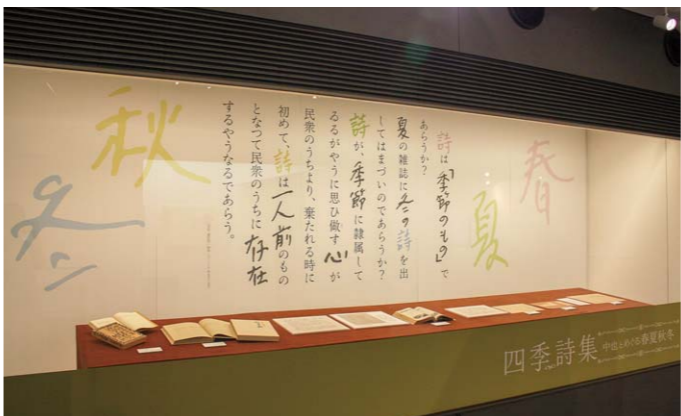 春
夏
詩は「季節のもの」で
あらうか?
夏の雑誌に冬の詩を出
してはまづいのであらうか?
詩が、季節に隷属して
ゐるがやうに思ひ做す心が
民衆のうちより、棄たれる時に
初めて、詩は一人前のもの
となつて民衆のうちに存在
するやうなるであらう。
秋
冬
四季詩集 中也とめぐる春夏秋冬